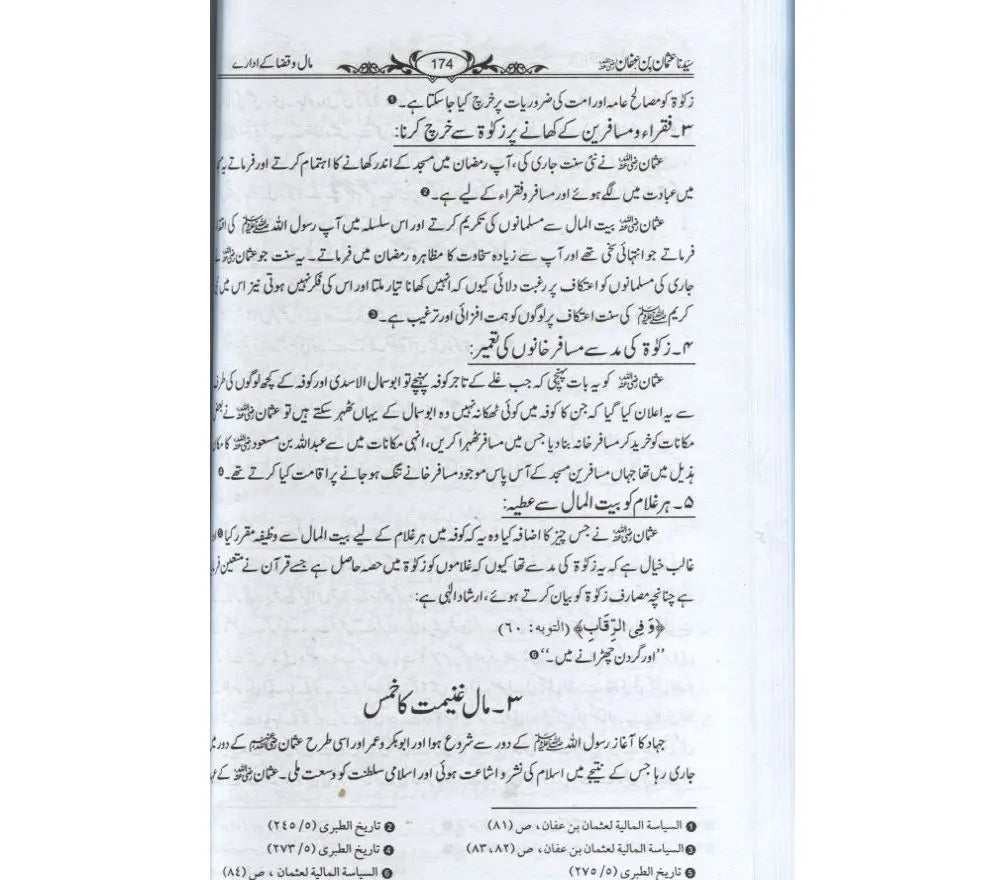 سیدنا عثمان بن عفان رضی اللہ عنہ 174 مال و قضا کے ادارے
زکوٰۃ کو مصالح عامہ اور امت کی ضروریات پر خرچ کیا جا سکتا ہے۔❶
۳۔ فقراء و مسافرین کے کھانے پر زکوٰۃ سے خرچ کرنا:
عثمان رضی اللہ عنہ نے نئی سنت جاری کی، آپ رمضان میں مسجد کے اندر کھانے کا اہتمام کرتے اور فرماتے یہ
میں عبادت میں لگے ہوئے اور مسافر و فقراء کے لیے ہے۔❷
عثمان رضی اللہ عنہ بیت المال سے مسلمانوں کی تکریم کرتے اور اس سلسلہ میں آپ رسول اللہ ﷺ کی
فرماتے جو انتہائی سخی تھے اور آپ سے زیادہ سخاوت کا مظاہرہ رمضان میں فرماتے۔ یہ سنت جو عثمان رضی اللہ عنہ
جاری کی مسلمانوں کو اعتکاف پر رغبت دلائی کیوں کہ انہیں کھانا تیار ملتا اور اس کی فکر نہیں ہوتی نیز اس میں
کریم ﷺ کی سنت اعتکاف پر لوگوں کو ہمت افزائی اور ترغیب ہے۔❸
۴۔ زکوٰۃ کی مد سے مسافر خانوں کی تعمیر:
عثمان رضی اللہ عنہ کو یہ بات پہنچی کہ جب غلے کے تاجر کوفہ پہنچے تو ابو سمال الاسدی اور کوفہ کے کچھ لوگوں کی
سے یہ اعلان کیا گیا کہ جن کا کوفہ میں کوئی ٹھکانہ نہیں وہ ابو سمال کے یہاں ٹھہر سکتے ہیں تو عثمان رضی اللہ عنہ نے بعض
مکانات کو خرید کر مسافر خانہ بنا دیا جس میں مسافر ٹھہرا کریں، انہی مکانات میں سے عبداللہ بن مسعود رضی اللہ عنہ کا مکان
ہذیل میں تھا جہاں مسافرین مسجد کے آس پاس موجود مسافر خانے تنگ ہو جانے پر اقامت کیا کرتے تھے۔❹
۵۔ ہر غلام کو بیت المال سے عطیہ:
عثمان رضی اللہ عنہ نے جس چیز کا اضافہ کیا وہ یہ کہ کوفہ میں ہر غلام کے لیے بیت المال سے وظیفہ مقرر کیا❺
غالب خیال ہے کہ یہ زکوٰۃ کی مد سے تھا کیوں کہ غلاموں کو زکوٰۃ میں حصہ حاصل ہے جسے قرآن نے متعین
ہے چنانچہ مصارف زکوٰۃ کو بیان کرتے ہوئے، ارشاد الٰہی ہے:
﴿وَ فِی الرِّقَابِ﴾ (التوبہ: ٦٠)
’’اور گردن چھڑانے میں۔‘‘❻
۳۔ مال غنیمت کا خمس
جہاد کا آغاز رسول اللہ ﷺ کے دور سے شروع ہوا اور ابوبکر و عمر اور اسی طرح عثمان رضی اللہ عنہم کے دور
جاری رہا جس کے نتیجے میں اسلام کی نشر و اشاعت ہوئی اور اسلامی سلطنت کو وسعت ملی۔ عثمان رضی اللہ عنہ کے
❶ السیاسة المالیة لعثمان بن عفان، ص (٨١) ❷ تاریخ الطبری (٥/ ٢٤٥)
❸ السیاسة المالیة لعثمان بن عفان، ص (٨٢، ٨٣) ❹ تاریخ الطبری (٥/ ٢٧٣)
❺ تاریخ الطبری (٥/ ٢٧٥) ❻ السیاسة المالیة لعثمان، ص (٨٤)